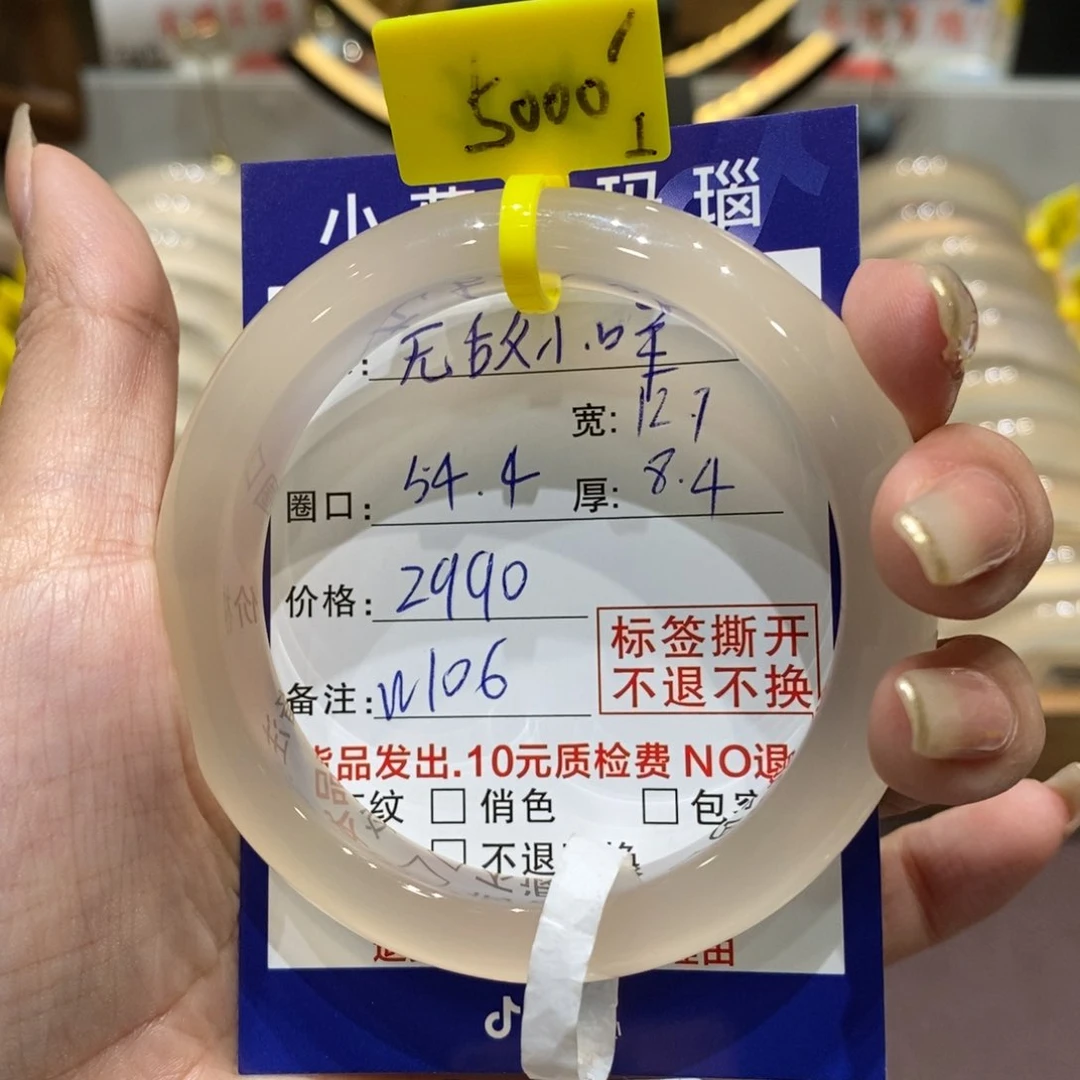 5000
1
小 玛瑙
无敌小咩
宽: 12.7
圈口: 54.4 厚: 8.4
价格: 2990
备注: W106
标签撕开
不退不换
货品发出.10元质检费 NO退
纹 □ 俏色 □ 包
□ 不退 换